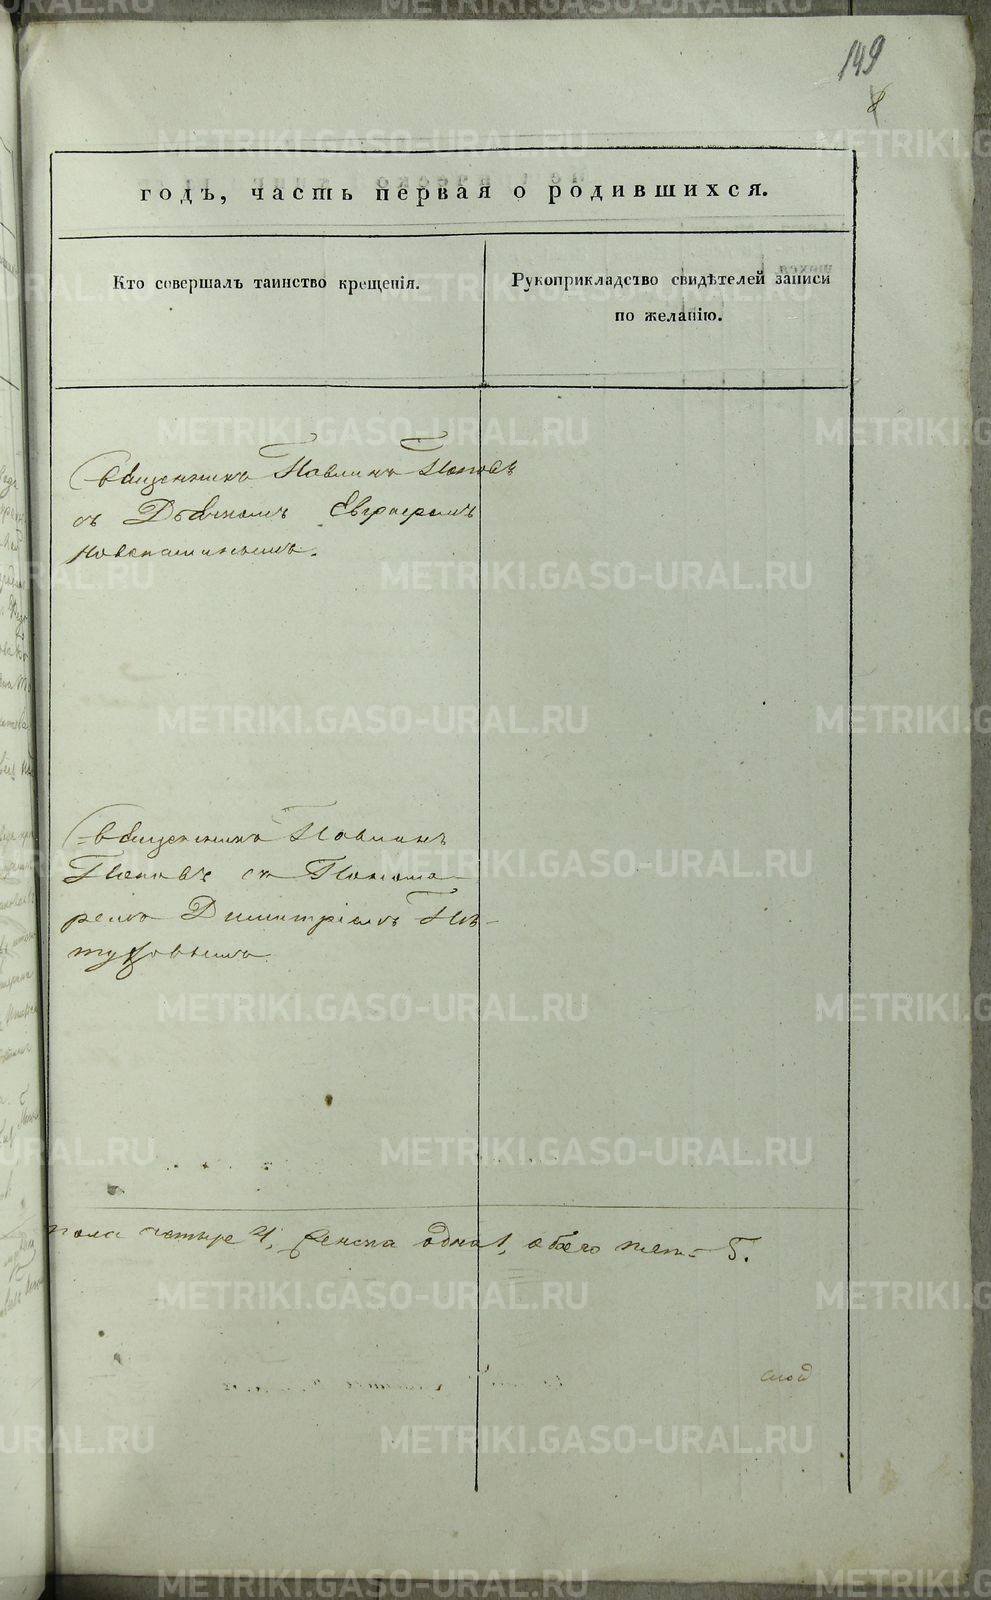 149
8
годъ, часть первая о родившихся.
Кто совершалъ таинство крещенія.
Рукоприкладство свидѣтелей записи
по желанію.
Священникъ Павлинъ Поповъ
съ Дьячкомъ
Священникъ Павлинъ
Поповъ съ Понома-
ремъ Димитріемъ Пѣ-
туховымъ.
пола четыре 4, женска одна 1, обоего пола - 5.
METRIKI.GASO-URAL.RU